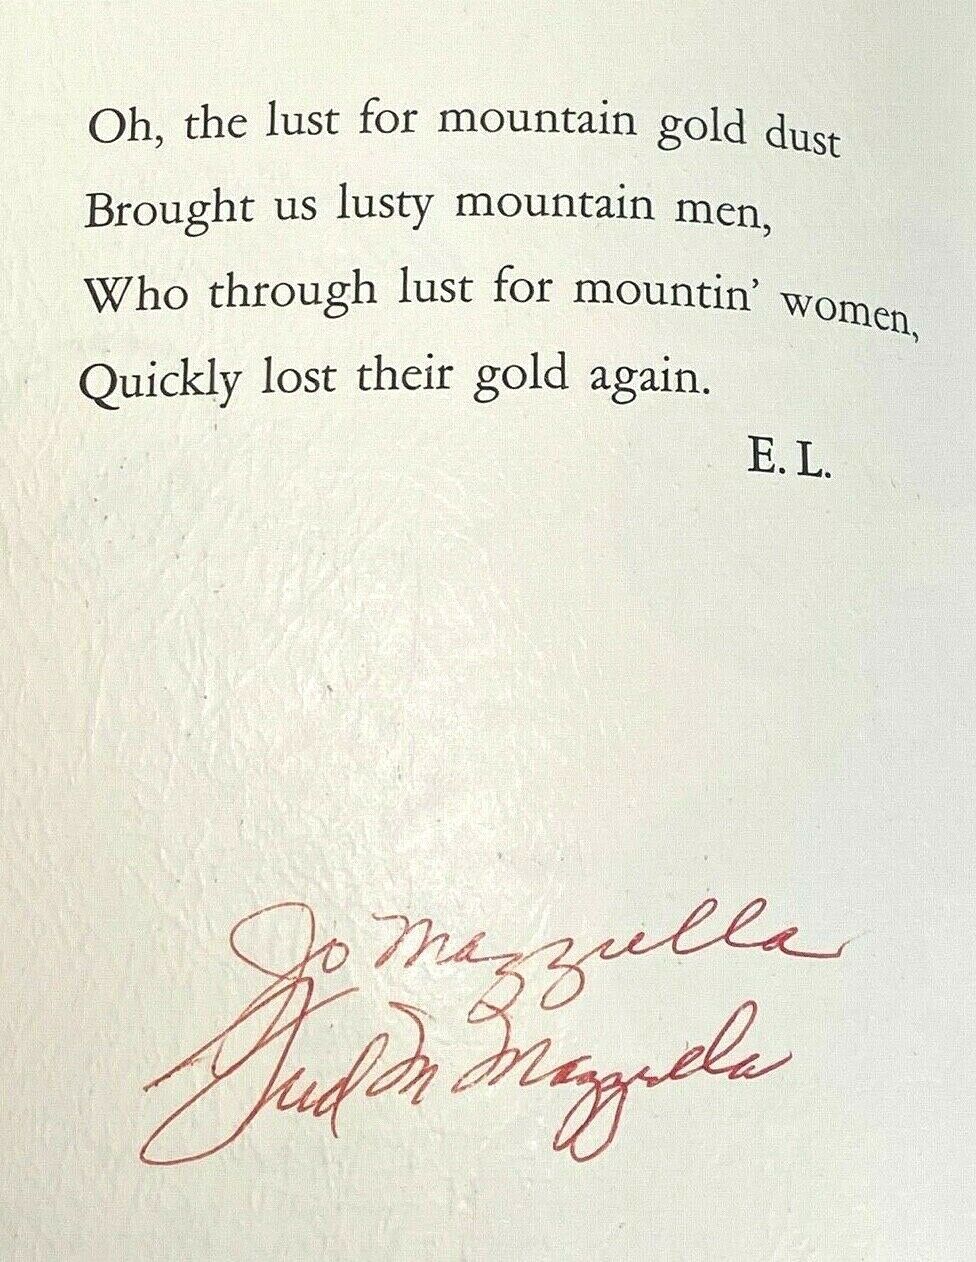 Oh, the lust for mountain gold dust
Brought us lusty mountain men,
Who through lust for mountin' women,
Quickly lost their gold again.
E. L.
Jo Mazzulla
Fred M Mazzulla